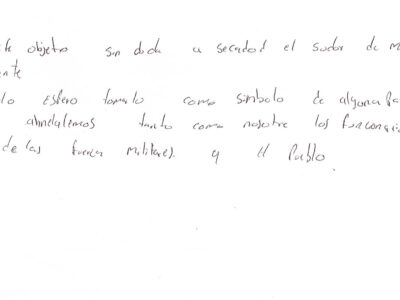 objetro sin duda a secado el sudor de m
ente
lo espero tomarlo como simbolo de alguna fa
tanto como nosotre los funcona
de las fuerza militares. y el Pueblo.